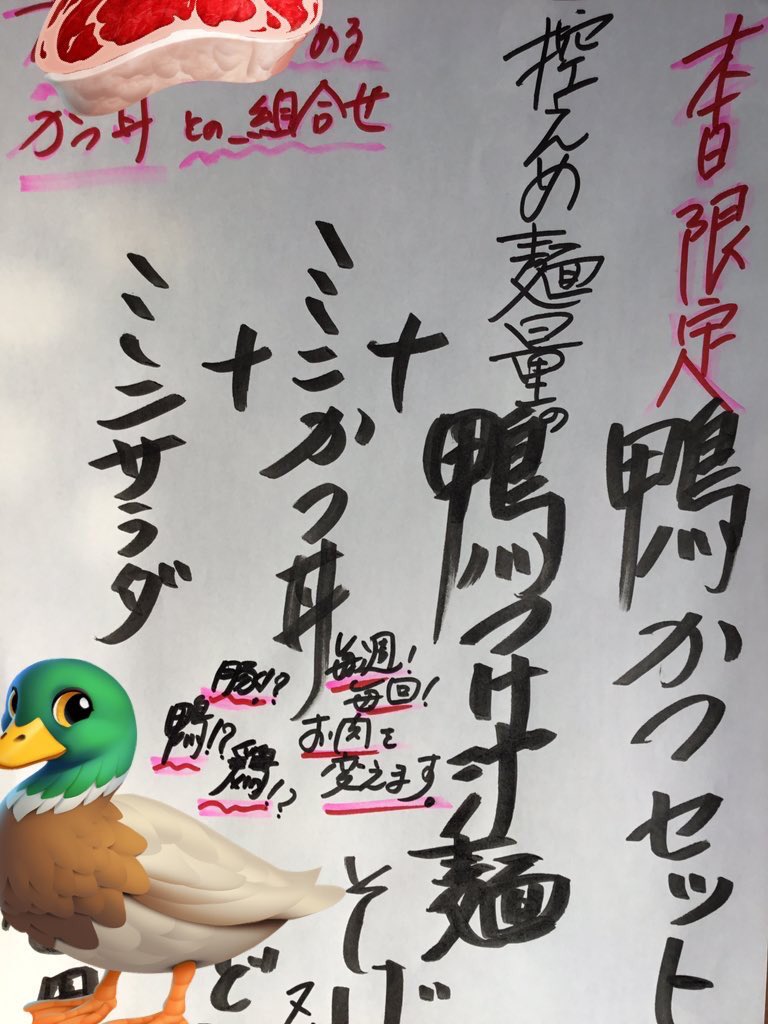 本日限定
鴨かつセット
控えめ麺量の
鴨つけ汁麺
＋
ミニかつ丼
＋
ミニサラダ
める
かつ丼との組合せ
毎週！
毎回！
お肉を
変えます。
豚!?
鴨!?
鶏!?
そば
ど